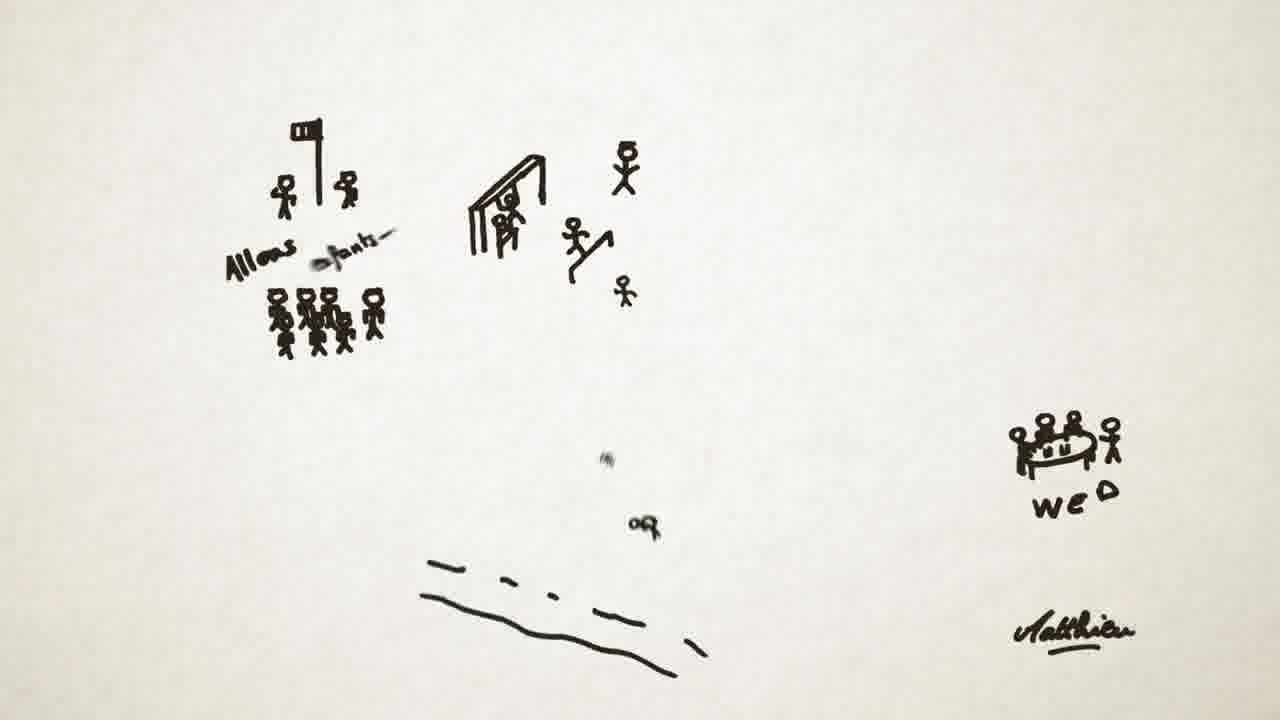 Allons enfants
WED
Matthieu